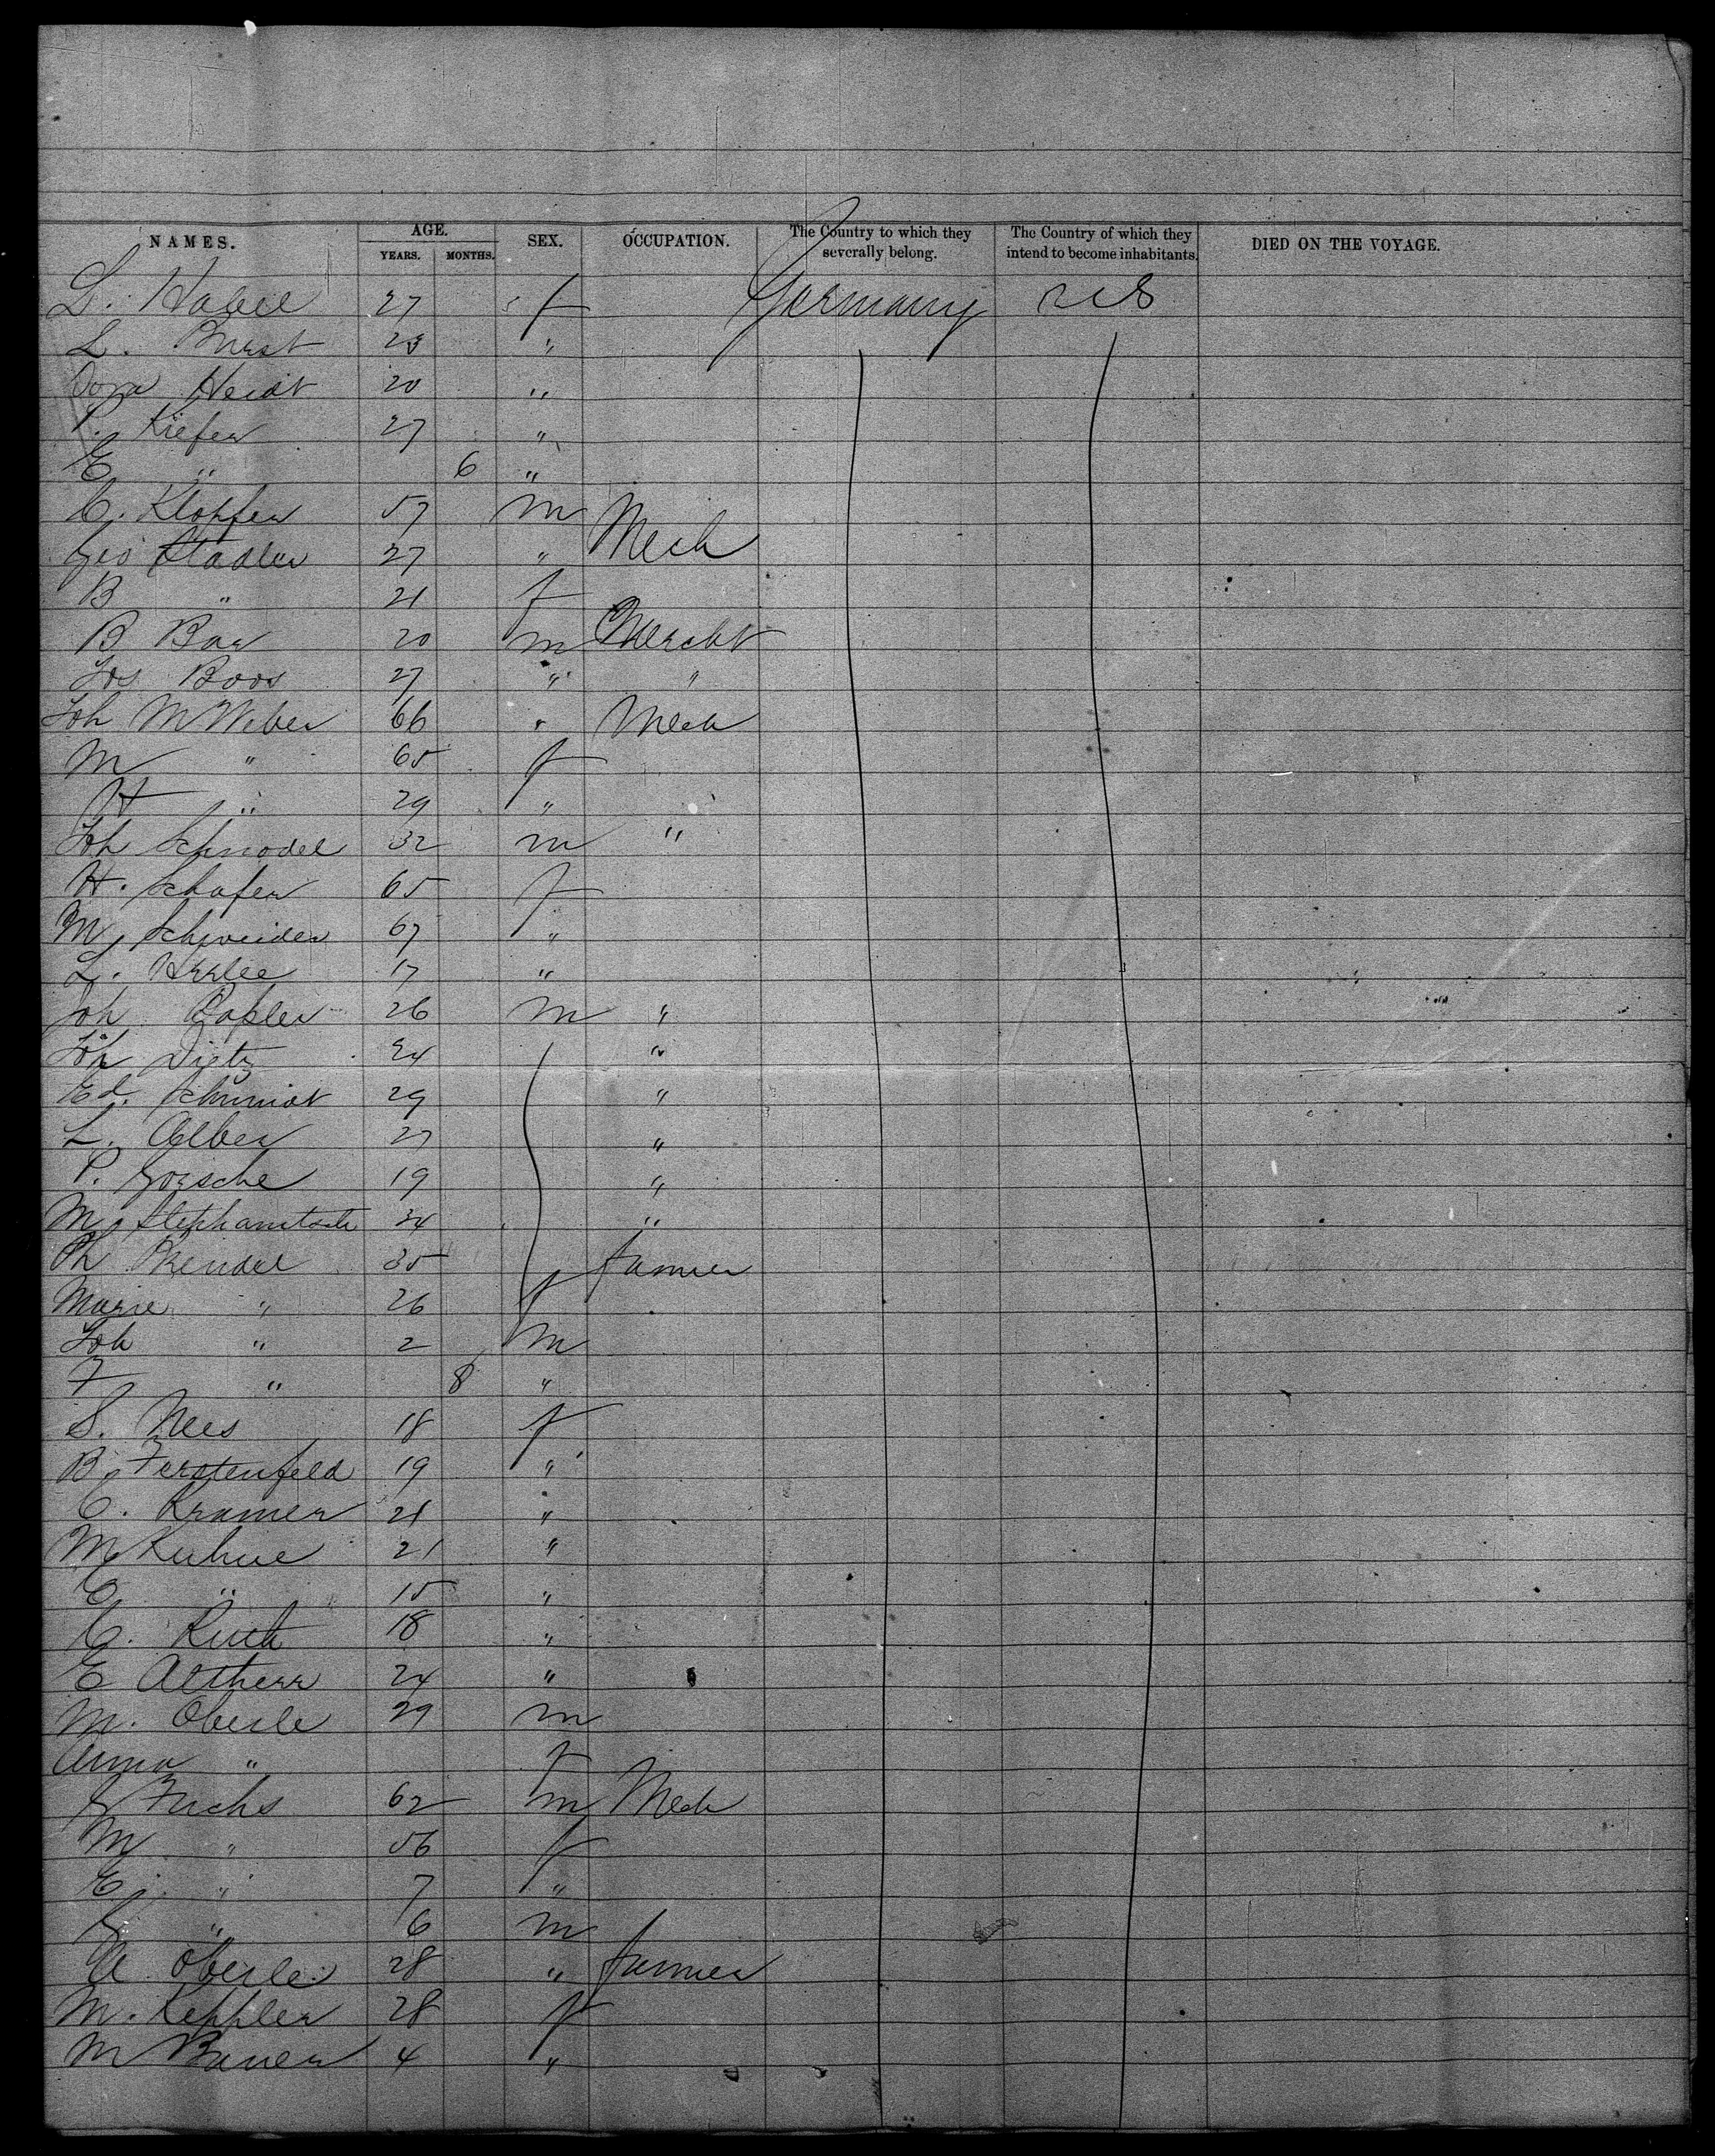 NAMES. AGE. SEX. OCCUPATION. The Country to which they severally belong. The Country of which they intend to become inhabitants. DIED ON THE VOYAGE.
YEARS. MONTHS.
L. 27 f Germany US
L. 23 "
Dora Heidt 20 "
P. Kiefer 27 "
E " 6 "
C. Klopfer 57 m Mech
Geo Stadler 27 "
B " 21 f
B Bar 20 m Mercht
Jos Boos 27 " "
Joh M Weber 66 " Mech
M " 65 f
H " 29 "
Joh Schnodel 32 m "
H. Schafer 65 f
M. Schneider 67 "
L. 17 "
Joh 26 m "
Joh Dietz 24 "
Ed. Schmidt 29 "
L. Alber 27 "
P. Goesche 19 "
M. 34 "
Ph Bendel 35 farmer
Marie " 26 f
Joh " 2 m
F " 8 "
S. Nees 18 f
B. Ferstenfeld 19 "
C. Kramer 21 "
M Kuhne 21 "
E " 15 "
C. Ruth 18 "
E Altherr 24 "
M. Oberle 29 m
Anna " f
G Fuchs 62 m Mech
M " 56 f
E. " 7 "
G " 6 m
A. Oberle 28 " farmer
M. Keppler 28 f
M Bauer 4 "